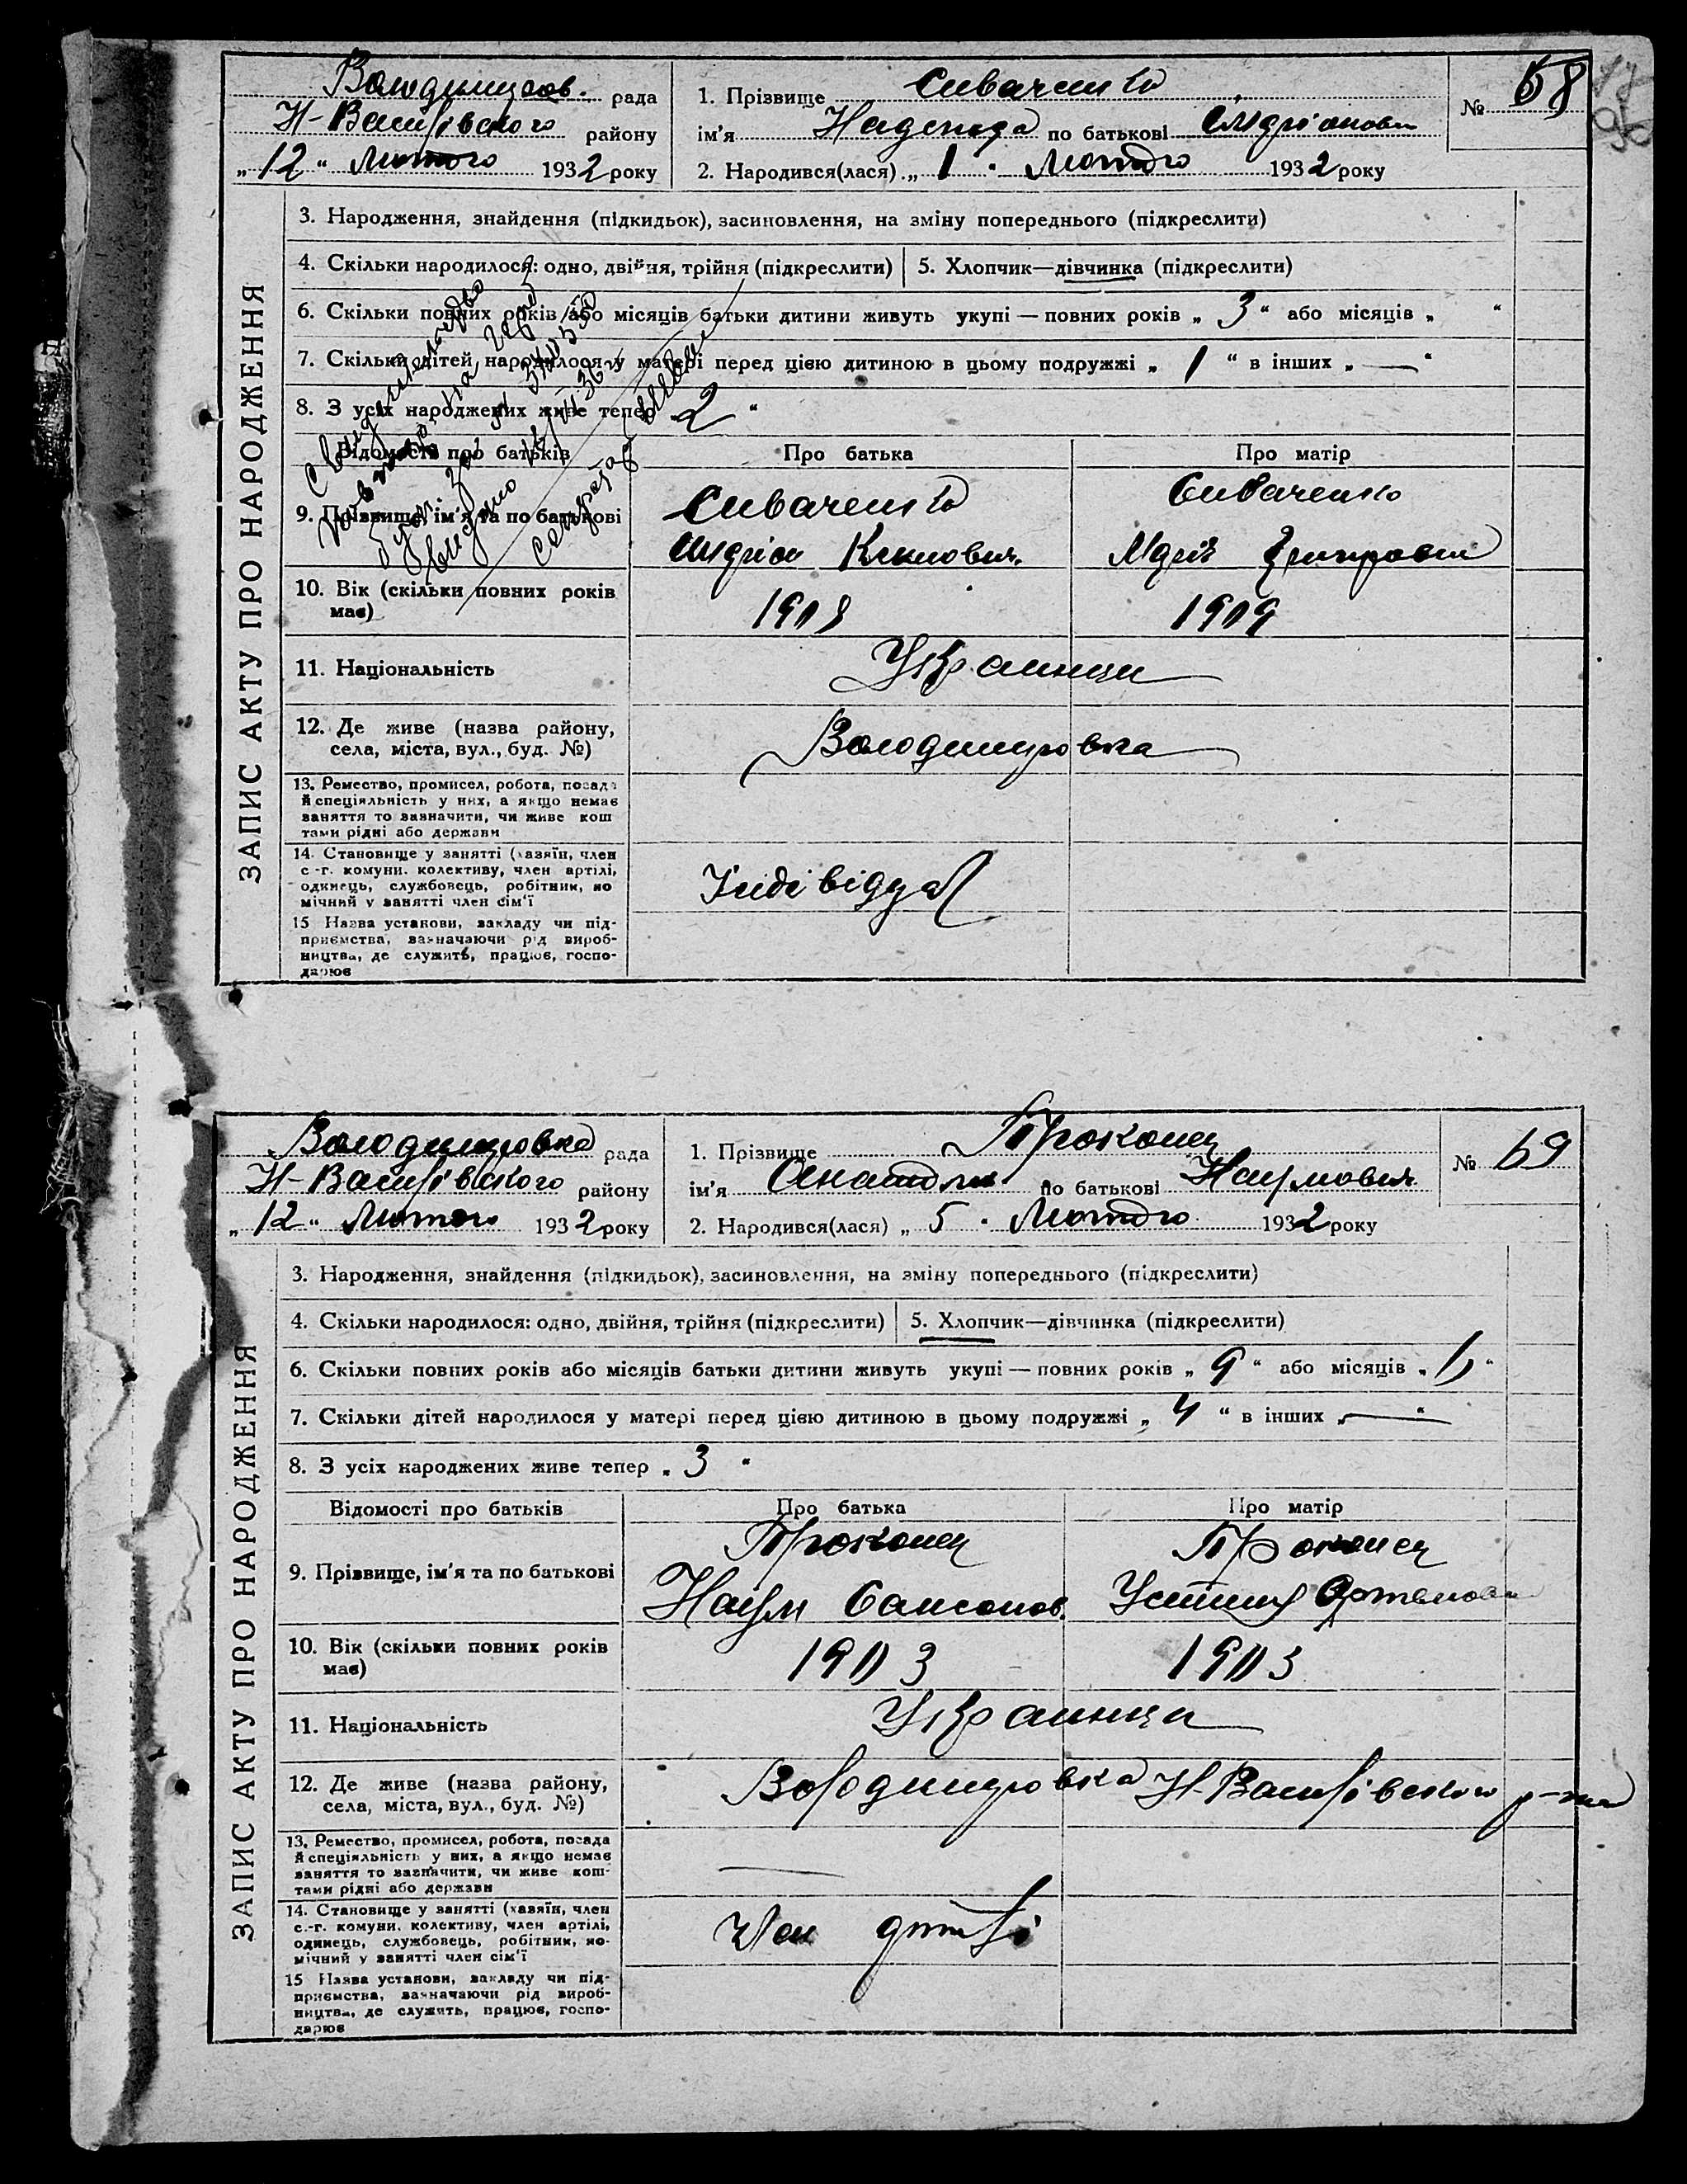 Володимиров. рада
Н-Василівського району
„12" Лютого 1932 року
1. Прізвище Сиваченко
ім'я Надежда по батькові
2. Народився(лася) „1" Лютого 1932 року
№ 68
3. Народження, знайдення (підкидьок), засиновлення, на зміну попереднього (підкреслити)
4. Скільки народилося: одно, двійня, трійня (підкреслити) 5. Хлопчик—дівчинка (підкреслити)
6. Скільки повних років або місяців батьки дитини живуть укупі — повних років „3" або місяців „ "
7. Скільки дітей народилося у матері перед цією дитиною в цьому подружжі „1" в інших „—"
8. З усіх народжених живе тепер „2"
Відомості про батьків Про батька Про матір
9. Прізвище, ім'я та по батькові
Сиваченко Сиваченко
10. Вік (скільки повних років має) 1908 1909
11. Національність Украинци
12. Де живе (назва району, села, міста, вул., буд. №) Володимировка
13. Ремество, промисел, робота, посада
й спеціяльність у них, а якщо немає
заняття то зазначити, чи живе кош
тами рідні або держави
14. Становище у занятті (хазяїн, член
с.-г. комуни. колективу, член артілі,
одинець, службовець, робітник, по
мічний у занятті член сім'ї
Індівідуал
15 Назва установи, закладу чи під-
приємства, зазначаючи рід вироб-
ництва, де служить, працює, госпо-
дарює
ЗАПИС АКТУ ПРО НАРОДЖЕННЯ
Володимировка рада
Н-Василівського району
„12" Лютого 1932 року
1. Прізвище Проконец
ім'я по батькові Наумович
2. Народився(лася) „5" Лютого 1932 року
№ 69
3. Народження, знайдення (підкидьок), засиновлення, на зміну попереднього (підкреслити)
4. Скільки народилося: одно, двійня, трійня (підкреслити) 5. Хлопчик—дівчинка (підкреслити)
6. Скільки повних років або місяців батьки дитини живуть укупі — повних років „9" або місяців „ "
7. Скільки дітей народилося у матері перед цією дитиною в цьому подружжі „4" в інших „—"
8. З усіх народжених живе тепер „3"
Відомості про батьків Про батька Про матір
9. Прізвище, ім'я та по батькові
Проконец Проконец
Наум Самсонов. Устина Артемовна
10. Вік (скільки повних років має) 1903 1903
11. Національність Украинци
12. Де живе (назва району, села, міста, вул., буд. №) Володимировка Н-Василівського р-на
13. Ремество, промисел, робота, посада
й спеціяльність у них, а якщо немає
заняття то зазначити, чи живе кош-
тами рідні або держави
14. Становище у занятті (хазяїн, член
с.-г. комуни. колективу, член артілі,
одинець, службовець, робітник, по-
мічний у занятті член сім'ї
Член артілі
15 Назва установи, закладу чи під-
приємства, зазначаючи рід вироб-
ництва, де служить, працює, госпо-
дарює
ЗАПИС АКТУ ПРО НАРОДЖЕННЯ